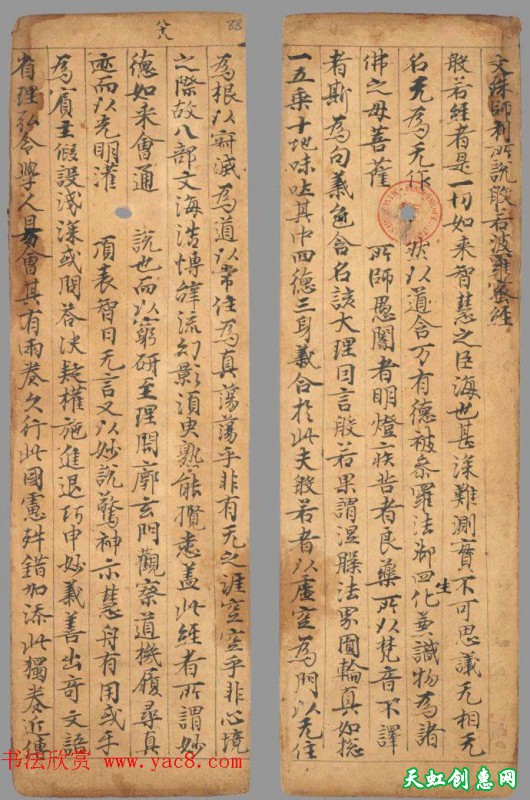 文殊師利所說般若波羅蜜經
般若經者是一切如来智慧之臣海也甚深難測實不可思議无相无
名无為无作 狀以道含万有德被森羅法御四生化兼識物為諸
佛之母菩薩 所師愚闇者明燈疾苦者良藥所以梵音不譯
者斯為向義包含名該大理曰言般若果謂涅膜法界圓輪真如捴
一五乗十地味其中四德三身義合扵此夫般若者以虛空為門以无住
88
為根以寂滅為道以常住為真蕩蕩乎非有无之涯空空乎非心境
之際故八部文海浩博肆流幻影須臾熟能攬悉盖此經者所謂妙
德如来會通 說也而以窮研至理開廓玄門觀察道機履尋真
迹而以光明灌 項表智日无言又以妙說驚神示慧舟有用或乎
為賓主假設淺深或問荅决疑權施進退巧申妙義善出奇文語
省理弘令學人易會其有兩卷久行此國憲殊錯加添此獨卷近傳
书法欣赏 www.yac8.com
天虹创惠网